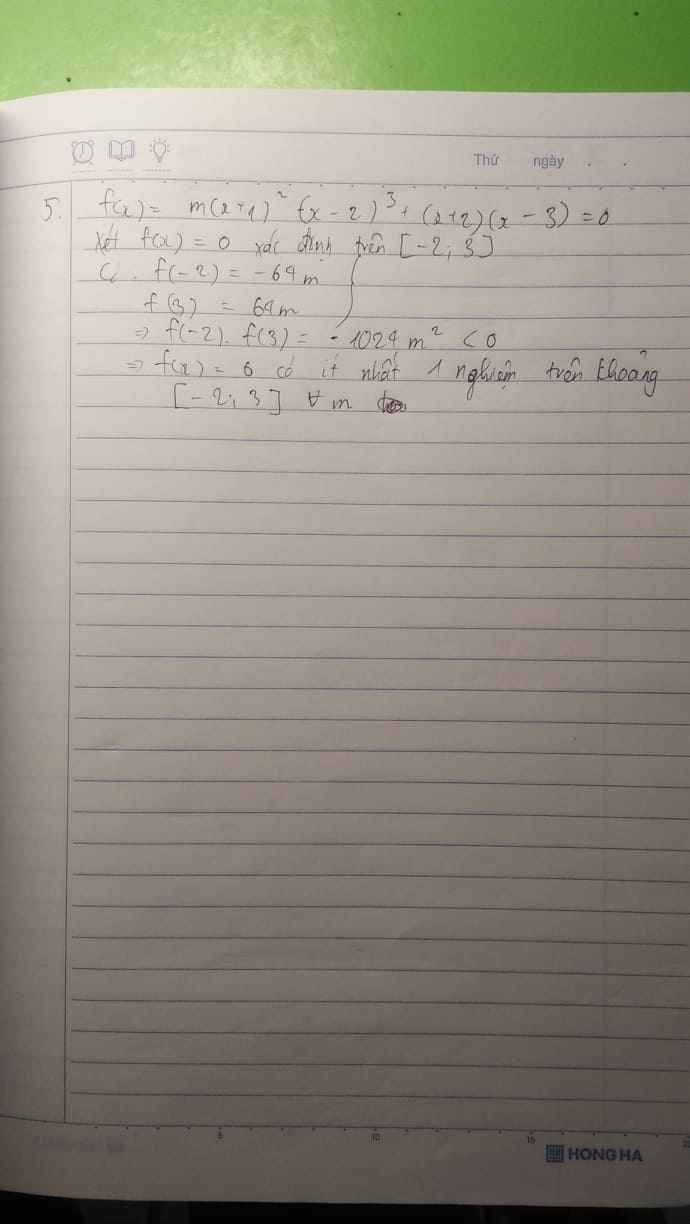 Thứ ngày . .
5. f(x) = m(x+1)² (x - 2)³ + (x+2)(x - 3) = 0
Xét f(x) = 0 xác định trên [-2; 3]
Có . f(-2) = -64 m
f(3) = 64m
⇒ f(-2). f(3) = - 1024 m² < 0
⇒ f(x) = 0 có ít nhất 1 nghiệm trên khoảng
[-2; 3] ∀ m
5 10 15
HONG HA